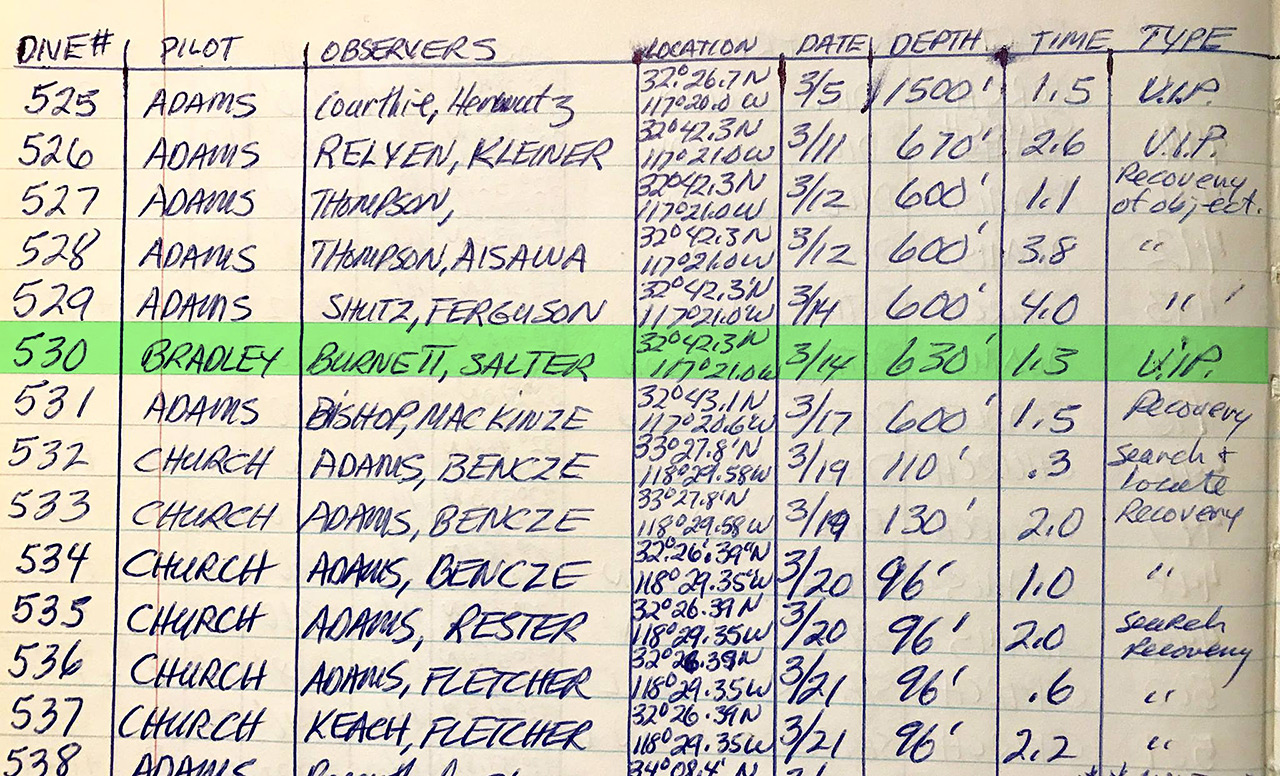 DIVE# PILOT OBSERVERS LOCATION DATE DEPTH TIME TYPE
525 ADAMS 32°26.7N 117°20.0W 3/5 1500' 1.5 V.I.P.
526 ADAMS RELYEN, KLEINER 32°42.3N 117°21.0W 3/11 670' 2.6 V.I.P.
527 ADAMS THOMPSON, 32°42.3N 117°21.0W 3/12 600' 1.1 Recovery of object.
528 ADAMS THOMPSON, AISAWA 32°42.3N 117°21.0W 3/12 600' 3.8 "
529 ADAMS SHUTZ, FERGUSON 32°42.3'N 117°21.0W 3/14 600' 4.0 " '
530 BRADLEY BURNETT, SALTER 32°42.3N 117°21.0W 3/14 630' 1.3 V.I.P.
531 ADAMS BISHOP, MACKINZE 32°43.1N 117°20.6'W 3/17 600' 1.5 Recovery
532 CHURCH ADAMS, BENCZE 33°27.8'N 118°29.58W 3/19 110' .3 Search + locate
533 CHURCH ADAMS, BENCZE 33°27.8'N 118°29.58W 3/19 130' 2.0 Recovery
534 CHURCH ADAMS, BENCZE 32°26'.39"N 118°29.35'W 3/20 96' 1.0 "
535 CHURCH ADAMS, RESTER 32°26.39N 118°29.35W 3/20 96' 2.0 Search Recovery
536 CHURCH ADAMS, FLETCHER 32°26.39N 118°29.35W 3/21 96' .6 "
537 CHURCH KEACH, FLETCHER 32°26.39N 118°29.35W 3/21 96' 2.2 "
538 ADAMS 34°08.4'N